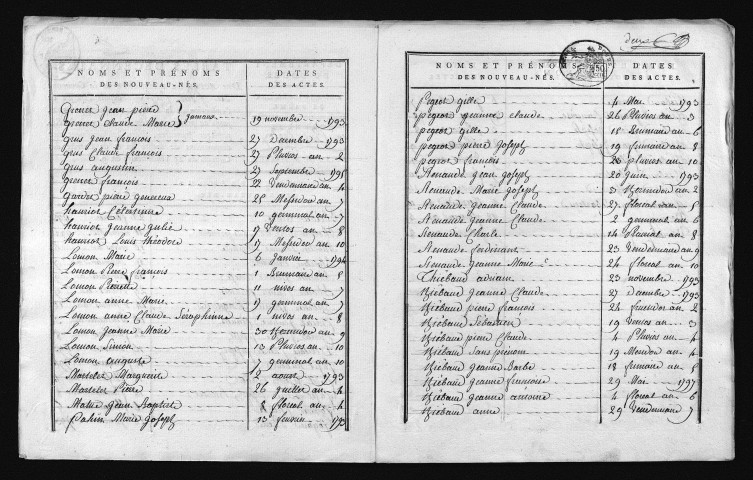 NOMS ET PRÉNOMS DES NOUVEAU-NÉS.
DATES DES ACTES.
Grenet Jean pierre
Grenet Claude Marie } Jumeaux 19 novembre 1793
Gris Jean francois 27 Decembre 1793
Gris Claude francois 27 Pluvios an 2
Gris augustin 27 Septembre 1795
Grenet francois 22 Vendemiaire an 4
Gardet pierre genereux 28 Messidor an 7
hanriot Célestienne 10 germinal an 7
hanriot Jeanne Julie 19 Ventos an 8
hanriot Louis théodore 17 Messidor an 10
Lomon Marie 6 Janvier 1794
Lomon Pierre francois 1 Brumaire an 8
Lomon Pierrette 11 nivos an 7
Lomon anne Marie 19 germinal an 7
Lomon anne Claude Séraphinne 1 nivos an 8
Lomon Jeanne Marie 30 thermidor an 9
Lomon Simon 13 Pluvios an 10
Lomon auguste 7 germinal an 10
Martelet Marguerit 2 aoust 1793
Martelet Pierre 26 Juillet an 4
Jean Baptiste 8 floreal an 4
Marie Joseph 13 fevrier
deux
NOMS ET PRÉNOMS DES NOUVEAU-NÉS.
DATES DES ACTES.
Pegeot gille 4 Mai 1793
pegeot jeanne claude 26 Pluvios an 3
pegeot gille 18 Brumaire an 6
pegeot pierre Joseph 19 frimaire an 8
pegeot francois 26 pluvios an 10
Renaude Jean Joseph 20 Juin 1793
Renaude Marie Joseph 3 thermidor an 2
Renaude Jeanne Claude 27 floreal an 5
Renaude Jeanne Claude 2 germinal an 6
Renaude Charle 14 Prairial an 8
Renaude ferdinant 25 Vendemiaire an 9
Renaude Jeanne Marie 24 floreal an 10
Thiebaud adrien 23 novembre 1793
thiebaud Jeanne Claude 27 Decembre 1793
thiebaud pierre francois 24 fructidor an 2
thiebaud Sebastien 19 Ventos an 3
thiebaud pierre Claude 4 Pluvios an 4
thiebaud Sans prenom 19 Messidor an 4
thiebaud Jeanne Barbe 18 frimaire an 8
thiebaud Jeanne francoise 29 Mai 1797
thiebaud Jeanne antoine 4 floreal an 6
thiebaud anne 29 Vendemiaire 7